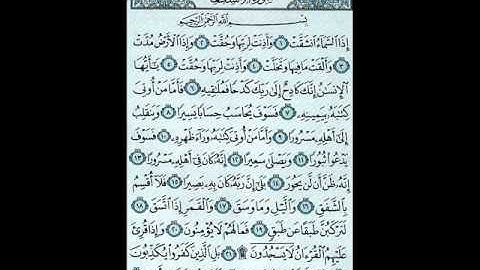 بِسْمِ ٱللَّهِ ٱلرَّحْمَٰنِ ٱلرَّحِيمِ
إِذَا ٱلسَّمَآءُ ٱنشَقَّتْ ١ وَأَذِنَتْ لِرَبِّهَا وَحُقَّتْ ٢ وَإِذَا ٱلْأَرْضُ مُدَّتْ
٣ وَأَلْقَتْ مَا فِيهَا وَتَخَلَّتْ ٤ وَأَذِنَتْ لِرَبِّهَا وَحُقَّتْ ٥ يَٰٓأَيُّهَا
ٱلْإِنسَٰنُ إِنَّكَ كَادِحٌ إِلَىٰ رَبِّكَ كَدْحًا فَمُلَٰقِيهِ ٦ فَأَمَّا مَنْ أُوتِىَ
كِتَٰبَهُۥ بِيَمِينِهِۦ ٧ فَسَوْفَ يُحَاسَبُ حِسَابًا يَسِيرًا ٨ وَيَنقَلِبُ
إِلَىٰٓ أَهْلِهِۦ مَسْرُورًا ٩ وَأَمَّا مَنْ أُوتِىَ كِتَٰبَهُۥ وَرَآءَ ظَهْرِهِۦ ١٠ فَسَوْفَ
يَدْعُوا۟ ثُبُورًا ١١ وَيَصْلَىٰ سَعِيرًا ١٢ إِنَّهُۥ كَانَ فِىٓ أَهْلِهِۦ مَسْرُورًا ١٣
إِنَّهُۥ ظَنَّ أَن لَّن يَحُورَ ١٤ بَلَىٰٓ إِنَّ رَبَّهُۥ كَانَ بِهِۦ بَصِيرًا ١٥ فَلَآ أُقْسِمُ
بِٱلشَّفَقِ ١٦ وَٱلَّيْلِ وَمَا وَسَقَ ١٧ وَٱلْقَمَرِ إِذَا ٱتَّسَقَ ١٨
لَتَرْكَبُنَّ طَبَقًا عَن طَبَقٍ ١٩ فَمَا لَهُمْ لَا يُؤْمِنُونَ ٢٠ وَإِذَا قُرِئَ
عَلَيْهِمُ ٱلْقُرْءَانُ لَا يَسْجُدُونَ ۩ ٢١ بَلِ ٱلَّذِينَ كَفَرُوا۟ يُكَذِّبُونَ